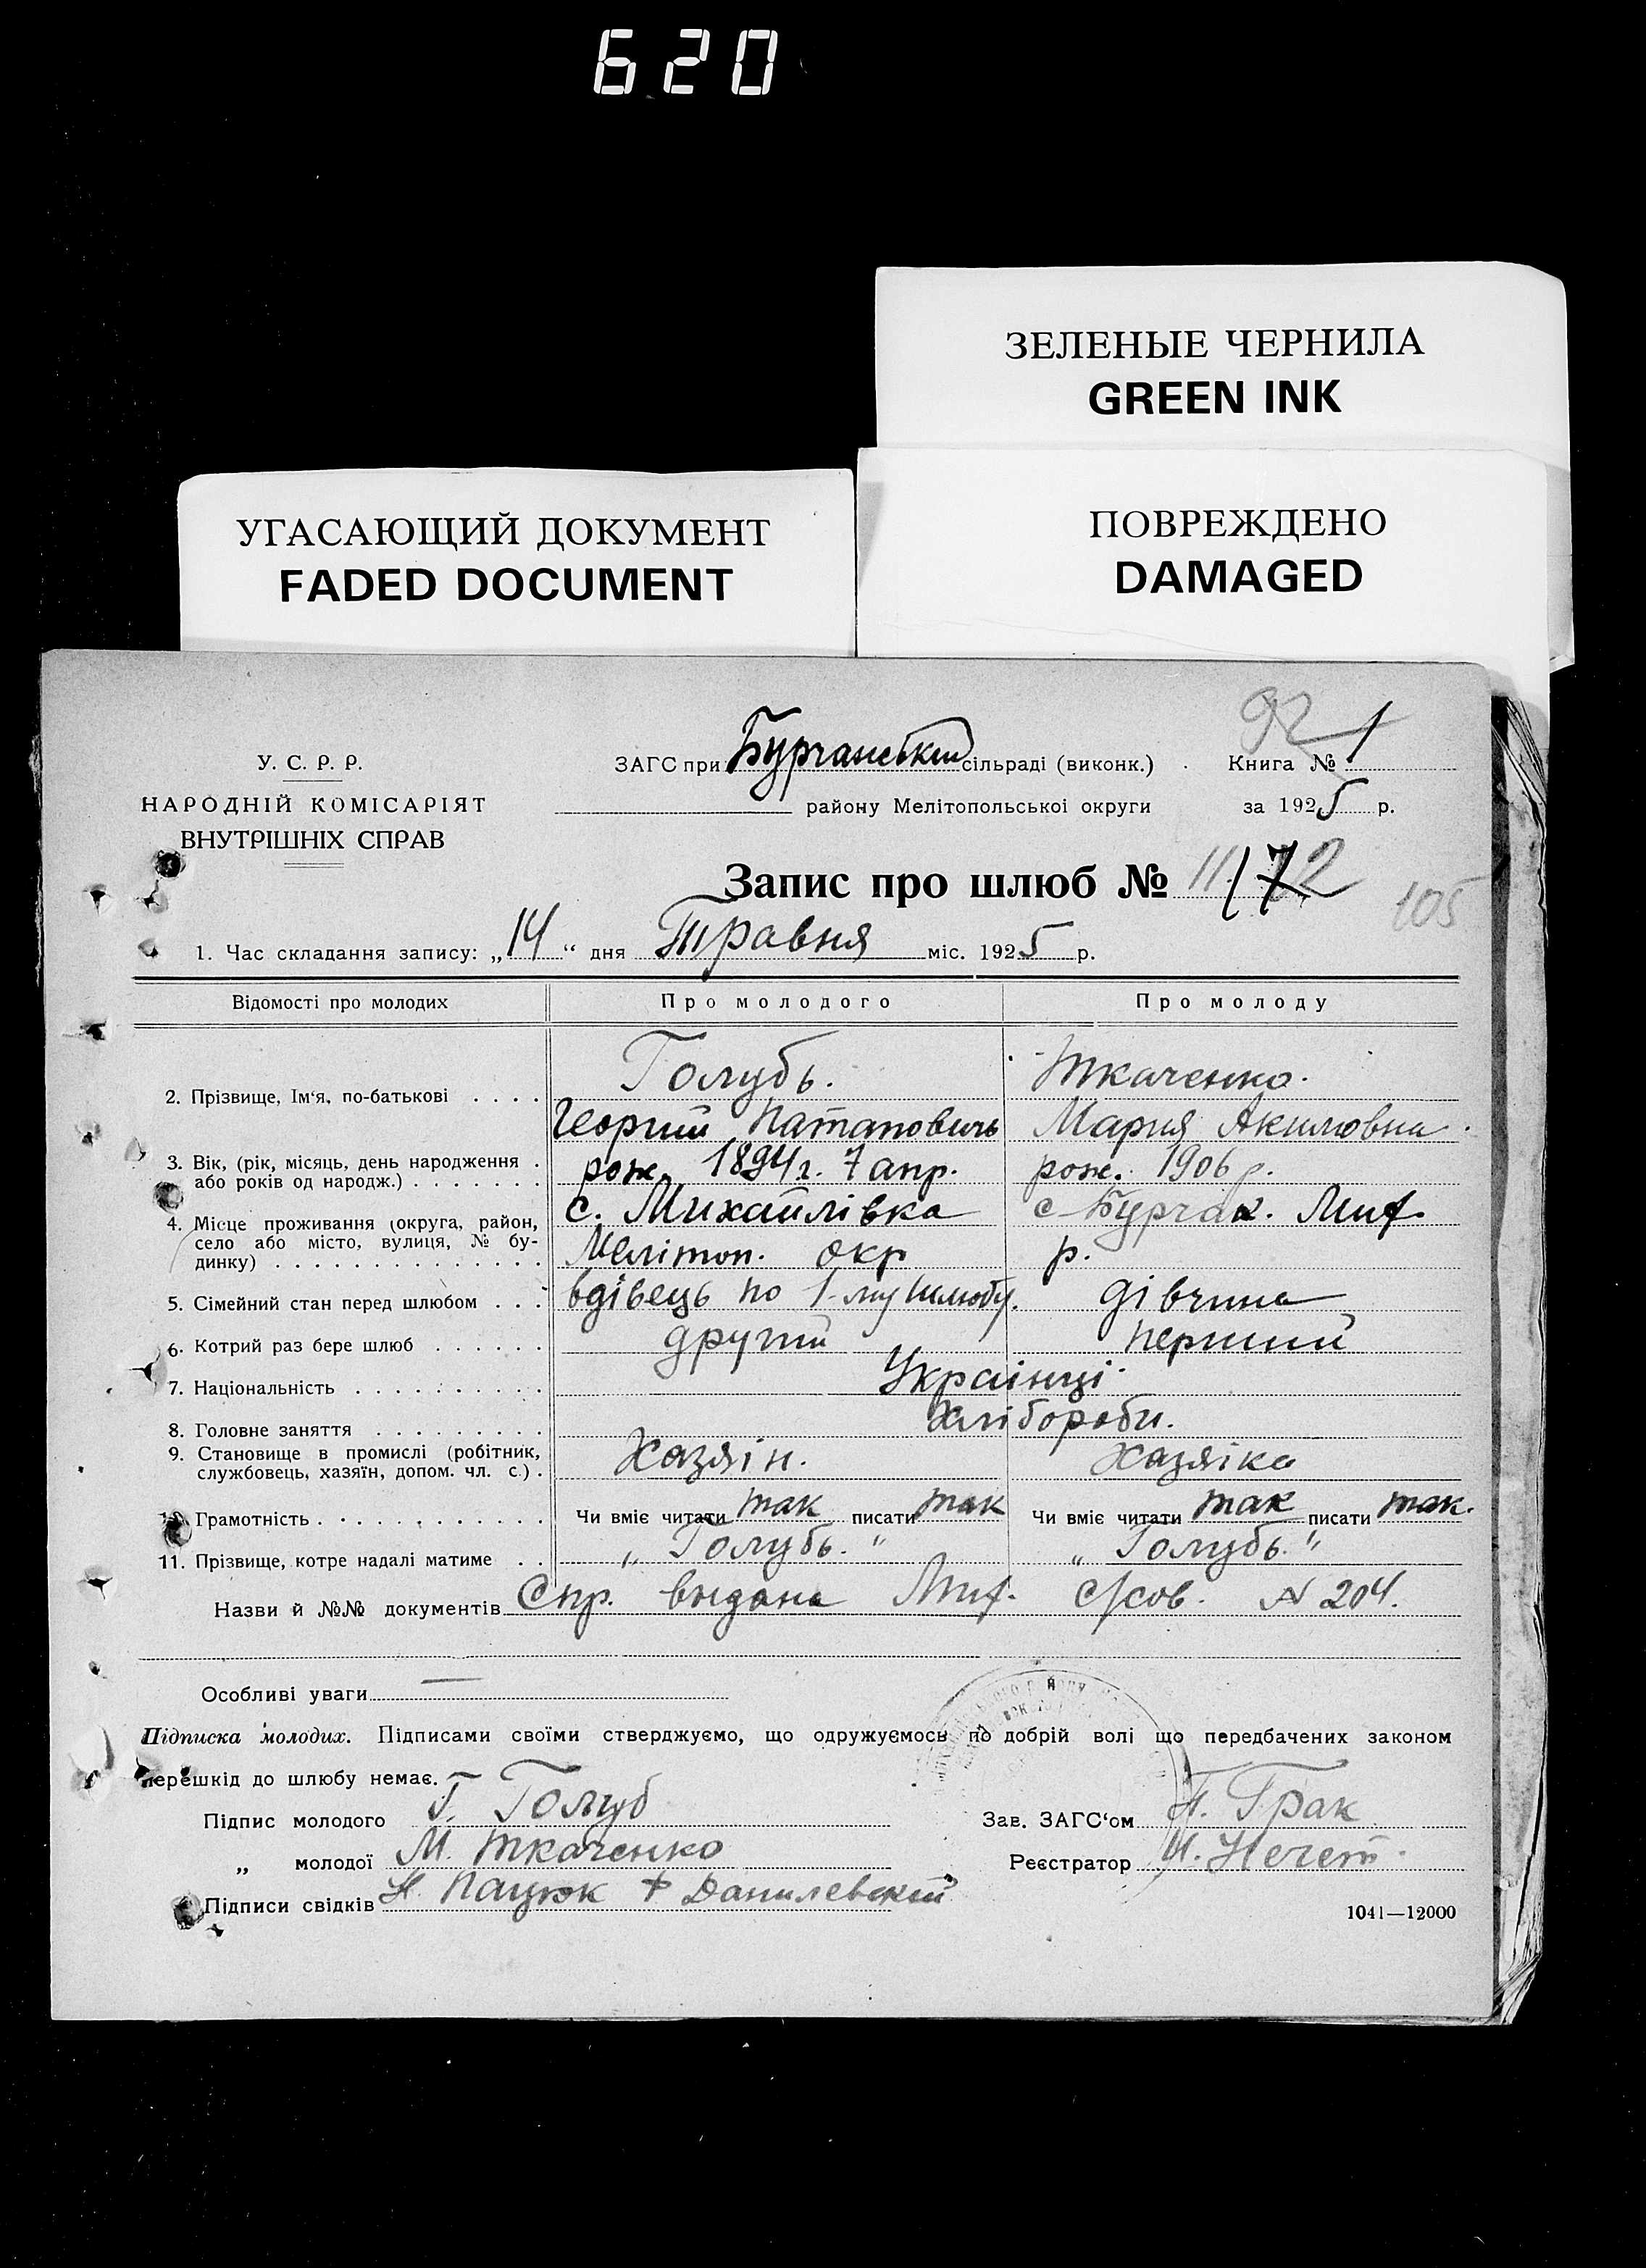 620
ЗЕЛЕНЫЕ ЧЕРНИЛА
GREEN INK
УГАСАЮЩИЙ ДОКУМЕНТ
FADED DOCUMENT
ПОВРЕЖДЕНО
DAMAGED
92
У. С. Р. Р.
НАРОДНІЙ КОМІСАРІЯТ
ВНУТРІШНІХ СПРАВ
ЗАГС при Бурчанській сільраді (виконк.) Книга № 1
району Мелітопольської округи за 1925 р.
Запис про шлюб № 11/
105
1. Час складання запису: „14“ дня Травня міс. 1925 р.
Відомості про молодих Про молодого Про молоду
2. Прізвище, Ім‘я, по-батькові Голубь. Ткаченко.
Георгий Патапович Мария Акимовна.
3. Вік, (рік, місяць, день народження або років од народж.) рож. 1894 г. 7 апр. рож. 1906 р.
4. Місце проживання (округа, район, село або місто, вулиця, № будинку) с. Михайлівка с Бурчак. Мих.
Мелітоп. окр р.
5. Сімейний стан перед шлюбом вдівець по 1-му шлюбу. дівчина
6. Котрий раз бере шлюб другий перший
7. Національність Українці
8. Головне заняття Хлібороби.
9. Становище в промислі (робітник, службовець, хазяїн, допом. чл. с.) Хазяін. Хазяіка
10. Грамотність Чи вміє читати так писати так Чи вміє читати так писати так.
11. Прізвище, котре надалі матиме „Голубь.“ „Голубь“
Назви й №№ документів Спр. видана Мих. с/сов. № 204.
Особливі уваги —
Підписка молодих. Підписами своїми стверджуємо, що одружуємось по добрій волі що передбачених законом
перешкід до шлюбу немає.
Підпис молодого Г. Голуб Зав. ЗАГС‘ом Грак
„ молодої М. Ткаченко Реєстратор Нечет.
Підписи свідків Пацюк Данилевский
1041—12000